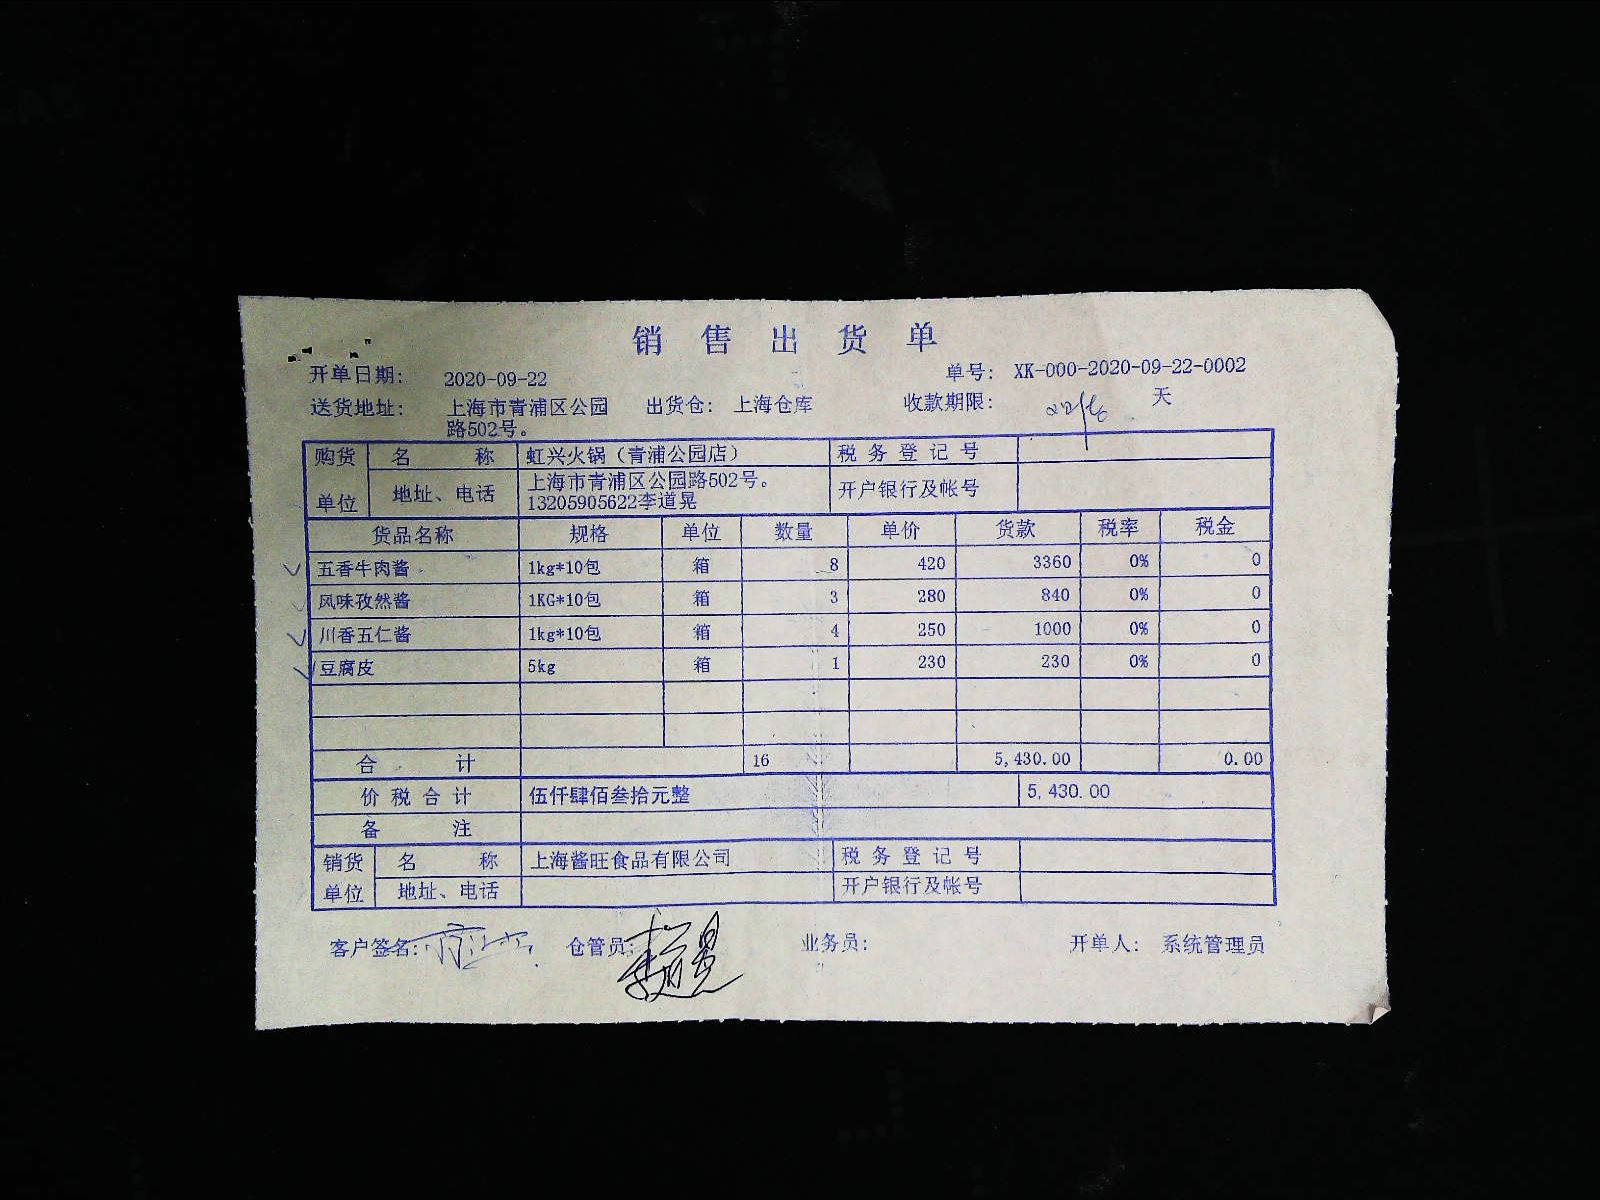 销售出货单
开单日期： 2020-09-22 单号： XK-000-2020-09-22-0002
送货地址： 上海市青浦区公园 出货仓： 上海仓库 收款期限： 天
路502号。
购货 名 称 虹兴火锅（青浦公园店） 税务登记号
单位 地址、电话 上海市青浦区公园路502号。 开户银行及帐号
13205905622李道晃
货品名称 规格 单位 数量 单价 货款 税率 税金
五香牛肉酱 1kg*10包 箱 8 420 3360 0% 0
风味孜然酱 1KG*10包 箱 3 280 840 0% 0
川香五仁酱 1kg*10包 箱 4 250 1000 0% 0
豆腐皮 5kg 箱 1 230 230 0% 0
合 计 16 5,430.00 0.00
价税合计 伍仟肆佰叁拾元整 5,430.00
备 注
销货 名 称 上海酱旺食品有限公司 税务登记号
单位 地址、电话 开户银行及帐号
客户签名： 仓管员： 李道晃 业务员： 开单人： 系统管理员